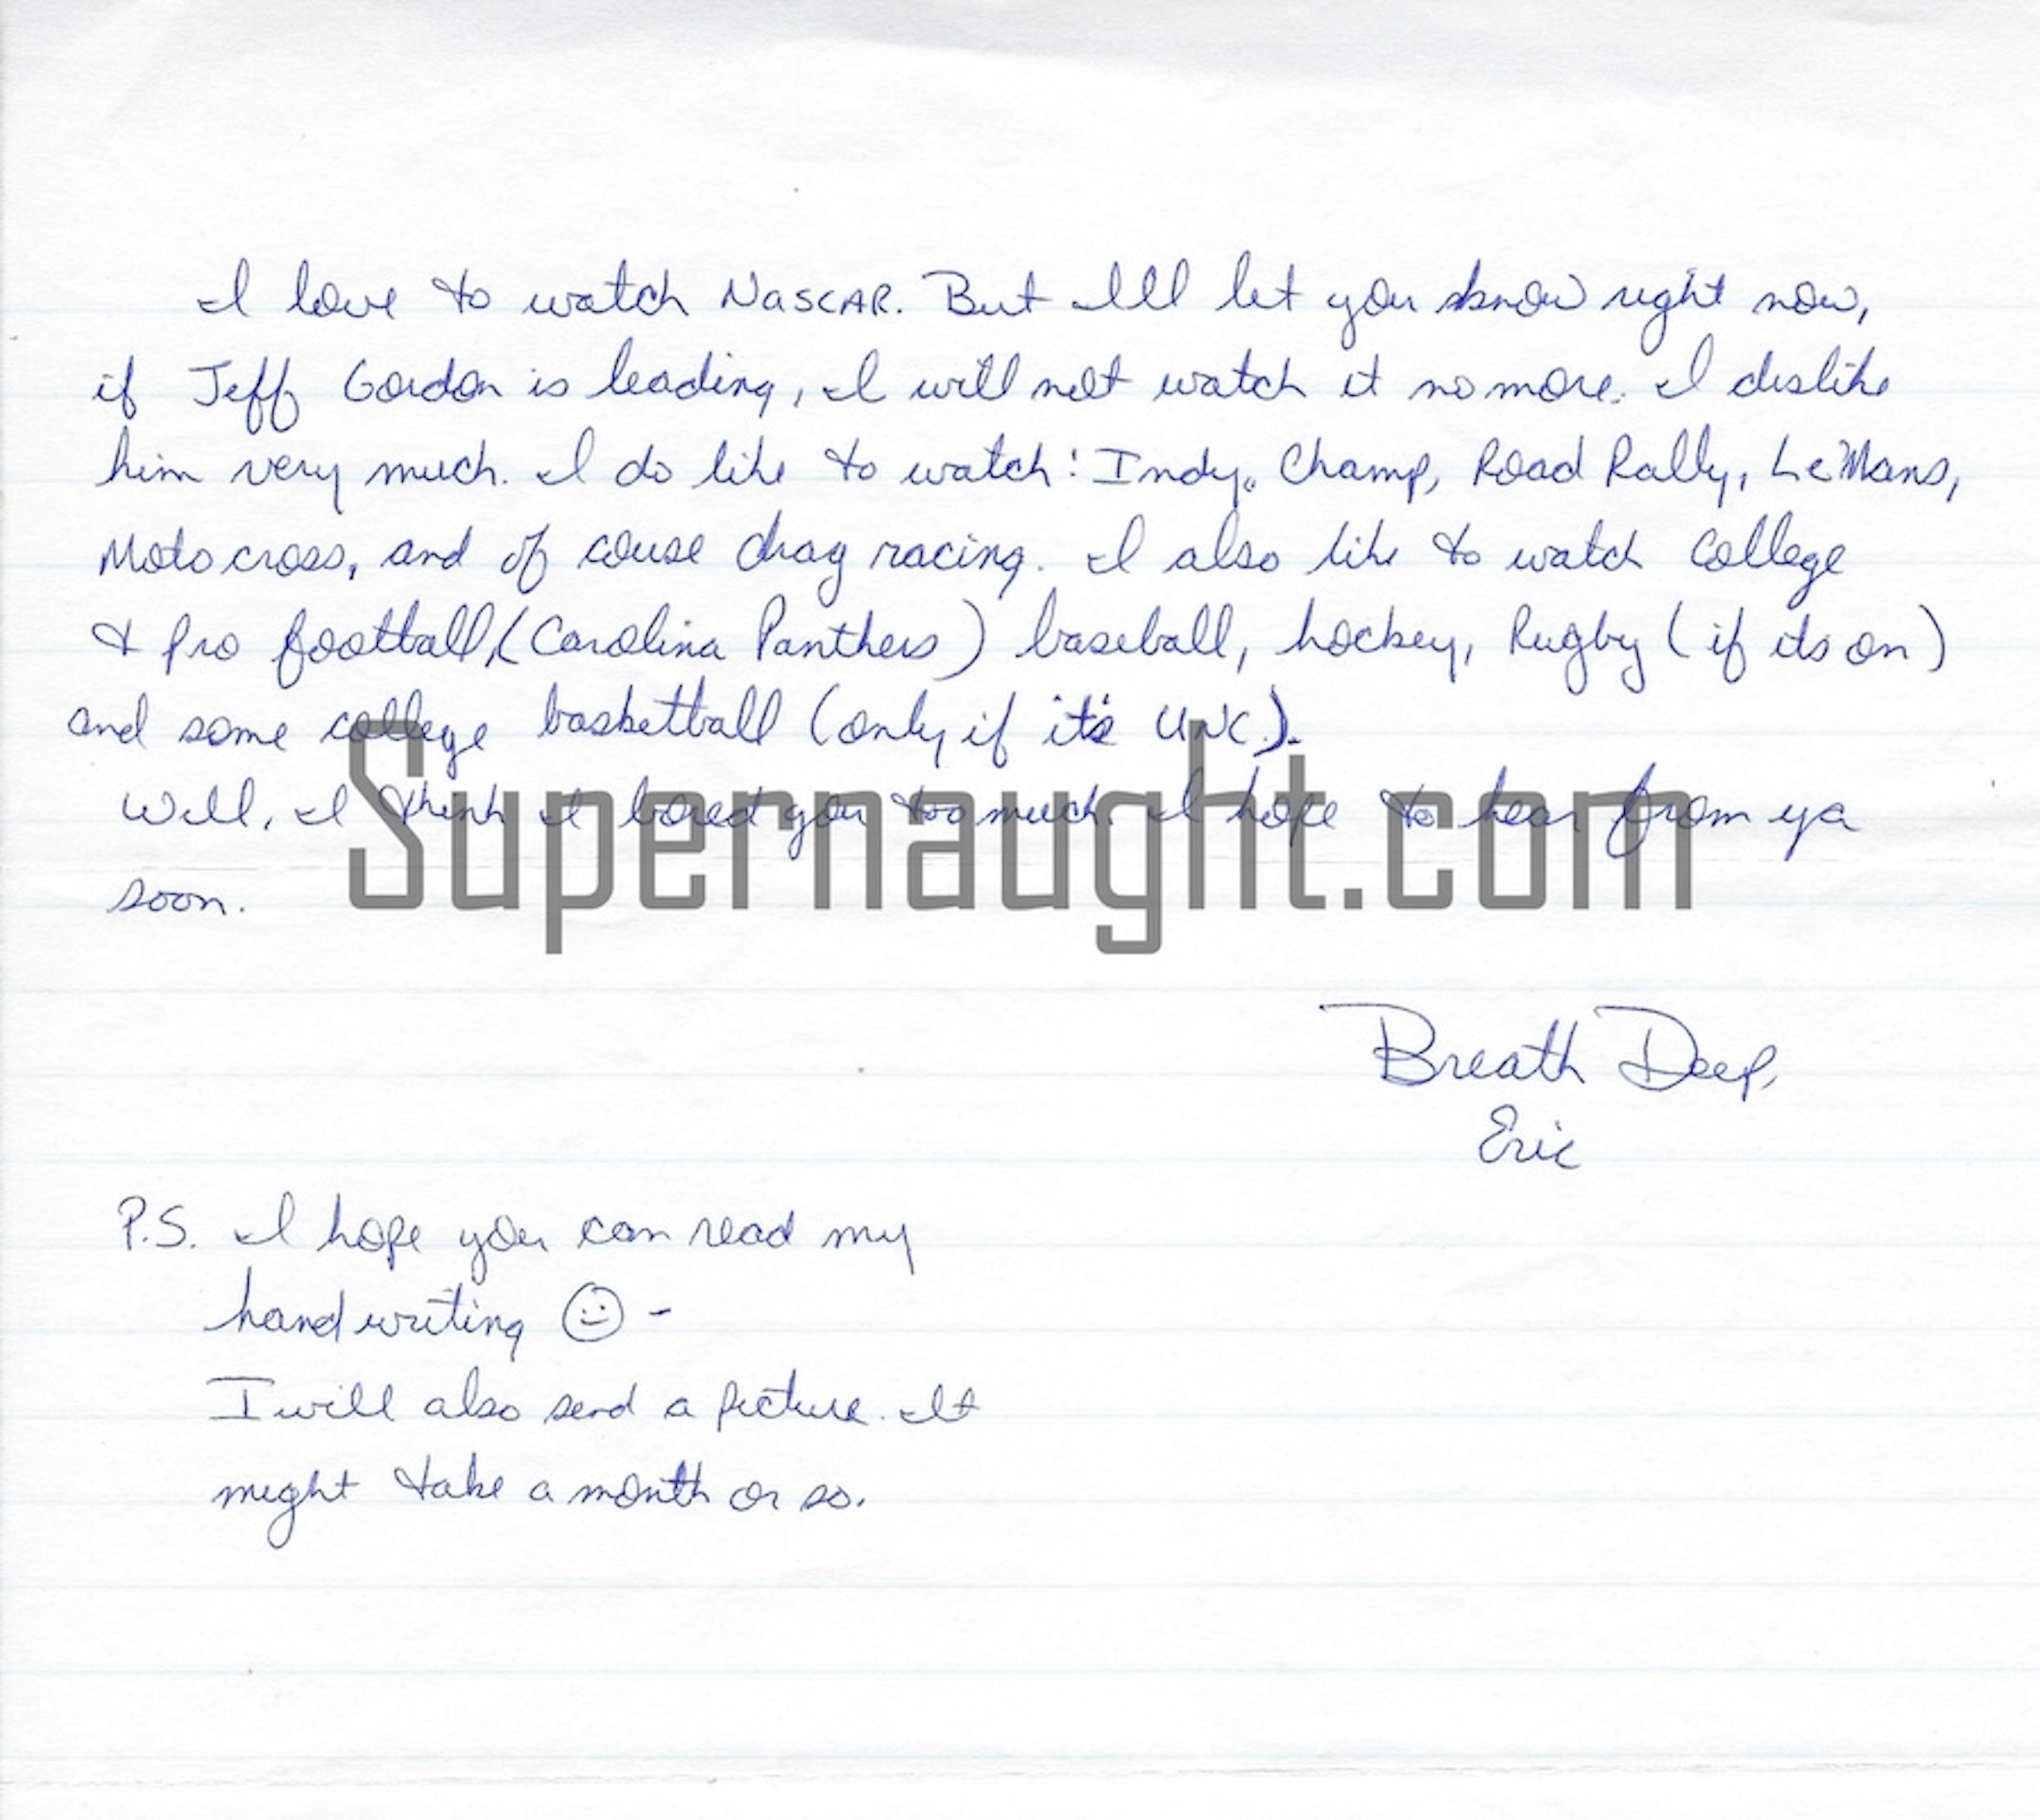 I love to watch NASCAR. But Ill let you know right now,
if Jeff Gordon is leading, I will not watch it no more. I dislike
him very much. I do like to watch: Indy, Champ, Road Rally, LeMans,
Motocross, and of couse drag racing. I also like to watch College
& Pro football, (Carolina Panthers) baseball, hockey, Rugby (if its on)
and some college basketball (only if it's UNC).
Well, I think I bored you too much. I hope to hear from ya
soon.
Supernaught.com
Breath Deep,
Eric
P.S. I hope you can read my
handwriting ☺ -
I will also send a picture. It
might take a month or so.